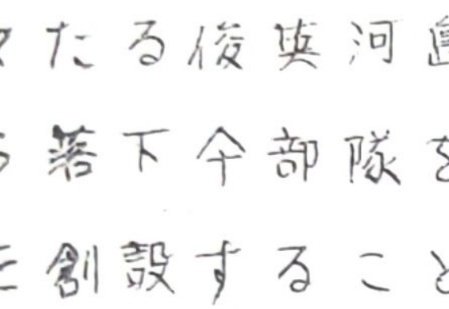 たる俊英河
落下仐部隊を
創設すること